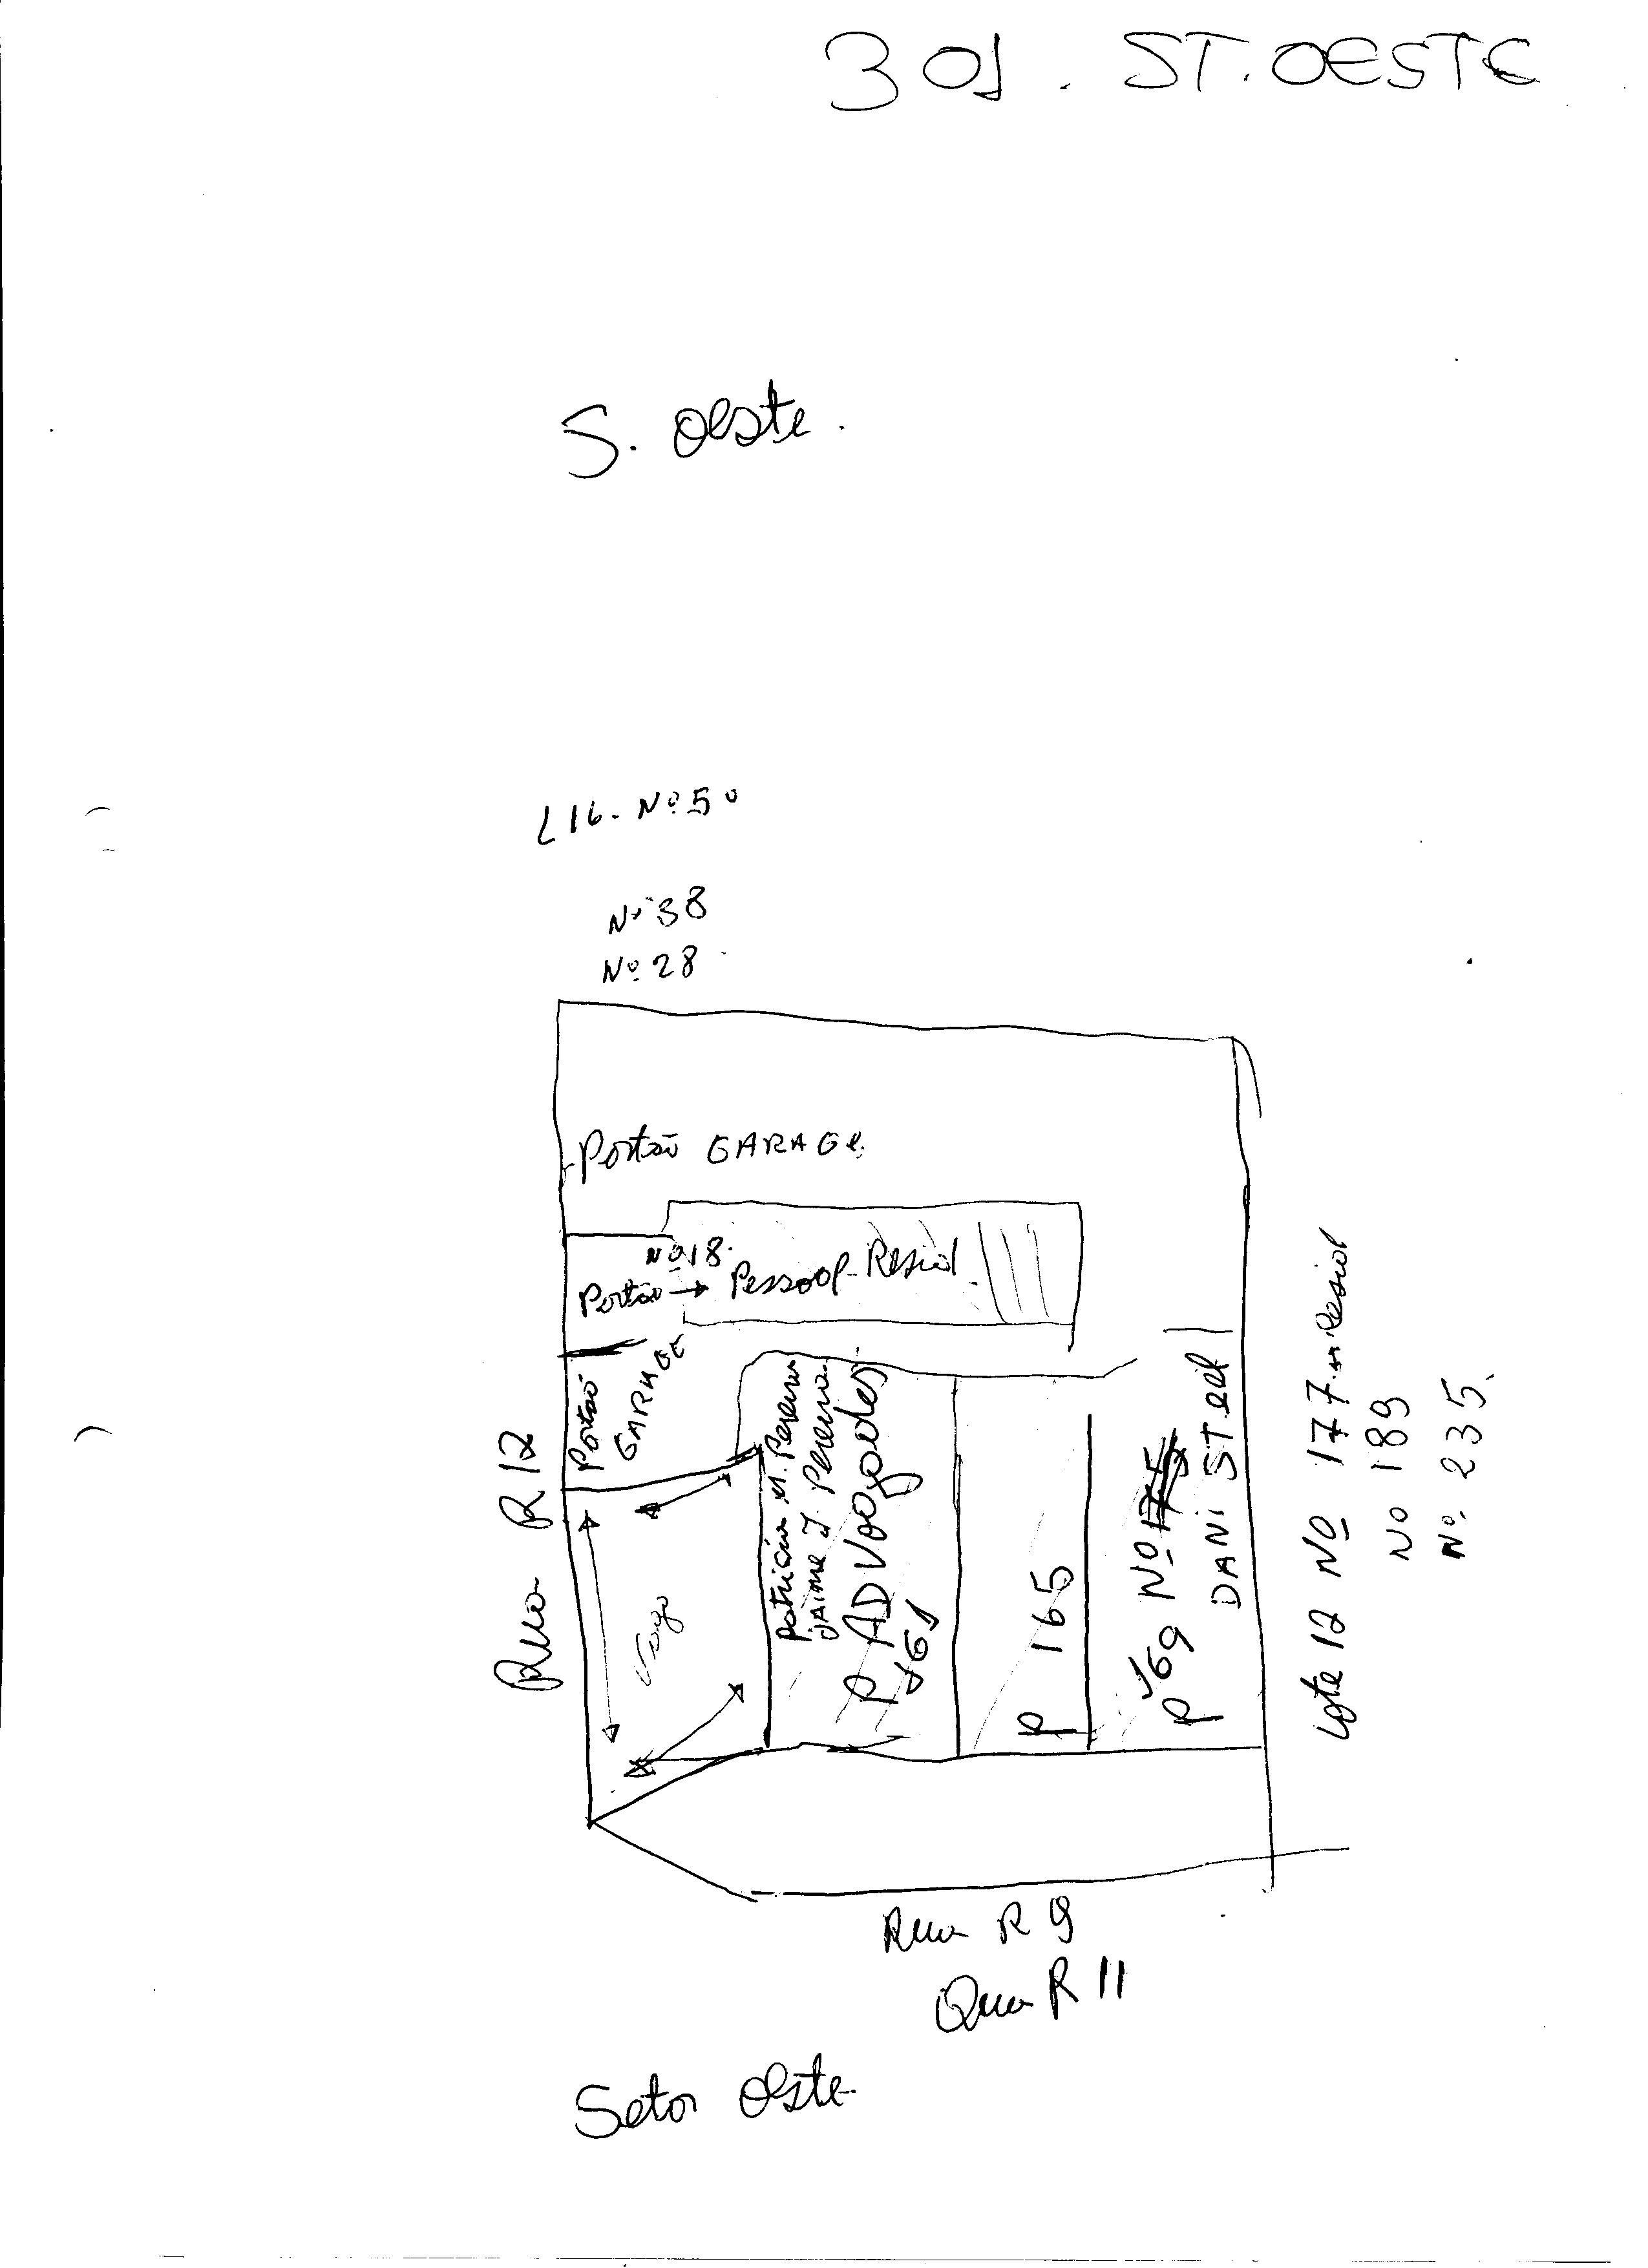 301. ST. OESTE
S. oeste.
L16. Nº 50
Nº 38
Nº 28
Portão GARAGE.
Nº 18.
Portão → Pessoal - Resid.
Portão
GARAGE
Rua R.12
Vago
Patricia M. Pereira
Jaime J. Pereira.
P ADVogados
161
P 165
P 169 Nº 175
DANI STEEL
Lote 12 Nº 177 Resid
Nº 189
Nº. 235.
Rua R 9
Qua R 11
Setor Oeste